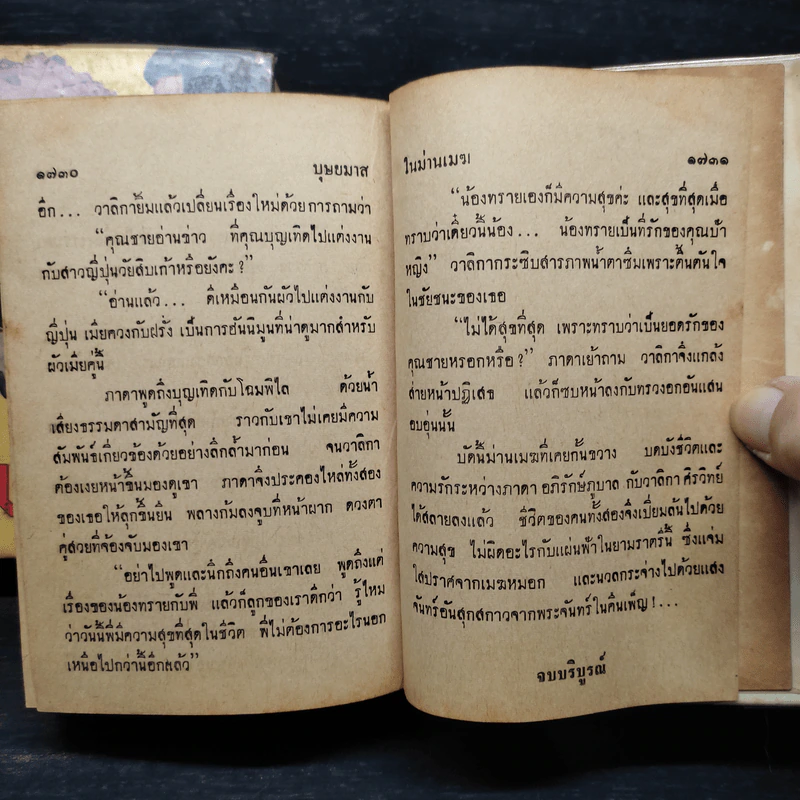 ๑๗๓๐ บุษยมาส
อีก... วาลิกายิ้มแล้วเปลี่ยนเรื่องใหม่ด้วยการถามว่า
“คุณชายอ่านข่าว ที่คุณบุญเทิดไปแต่งงาน
กับสาวญี่ปุ่นวัยสิบเก้าหรือยังคะ?”
“อ่านแล้ว... ดีเหมือนกันผัวไปแต่งงานกับ
ญี่ปุ่น เมียควงกับฝรั่ง เป็นการฮันนีมูนที่น่าดูมากสำหรับ
ผัวเมียคู่นี้
ภาดาพูดถึงบุญเทิดกับโฉมพิไล ด้วยน้ำ
เสียงธรรมดาสามัญที่สุด ราวกับเขาไม่เคยมีความ
สัมพันธ์เกี่ยวข้องด้วยอย่างลึกล้ำมาก่อน จนวาลิกา
ต้องเงยหน้าขึ้นมองดูเขา ภาดาจึงประคองไหล่ทั้งสอง
ของเธอให้ลุกขึ้นยืน พลางก้มลงจูบที่หน้าผาก ดวงตา
คู่สวยที่จ้องจับมองเขา
“อย่าไปพูดและนึกถึงคนอื่นเขาเลย พูดถึงแต่
เรื่องของน้องทรายกับพี่ แล้วก็ลูกของเราดีกว่า รู้ไหม
ว่าวันนี้พี่มีความสุขที่สุดในชีวิต พี่ไม่ต้องการอะไรนอก
เหนือไปกว่านี้อีกแล้ว”
ในม่านเมฆ ๑๗๓๑
“น้องทรายเองก็มีความสุขค่ะ และสุขที่สุดเมื่อ
ทราบว่าเดี๋ยวนี้น้อง... น้องทรายเป็นที่รักของคุณป้า
หญิง” วาลิกากระซิบสารภาพน้ำตาซึมเพราะตื้นตันใจ
ในชัยชนะของเธอ
“ไม่ได้สุขที่สุด เพราะทราบว่าเป็นยอดรักของ
คุณชายหรอกหรือ?” ภาดาเย้าถาม วาลิกาจึงแกล้ง
ส่ายหน้าปฏิเสธ แล้วก็ซบหน้าลงกับทรวงอกอันแสน
อบอุ่นนั้น
บัดนี้ม่านเมฆที่เคยกั้นขวาง บดบังชีวิตและ
ความรักระหว่างภาดา อภิรักษ์ภูบาล กับวาลิกา ศิรวิทย์
ได้สลายลงแล้ว ชีวิตของคนทั้งสองจึงเปี่ยมล้นไปด้วย
ความสุข ไม่ผิดอะไรกับแผ่นฟ้าในยามราตรีนี้ ซึ่งแจ่ม
ใสปราศจากเมฆหมอก และนวลกระจ่างไปด้วยแสง
จันทร์อันสุกสกาวจากพระจันทร์ในคืนเพ็ญ!...
จบบริบูรณ์